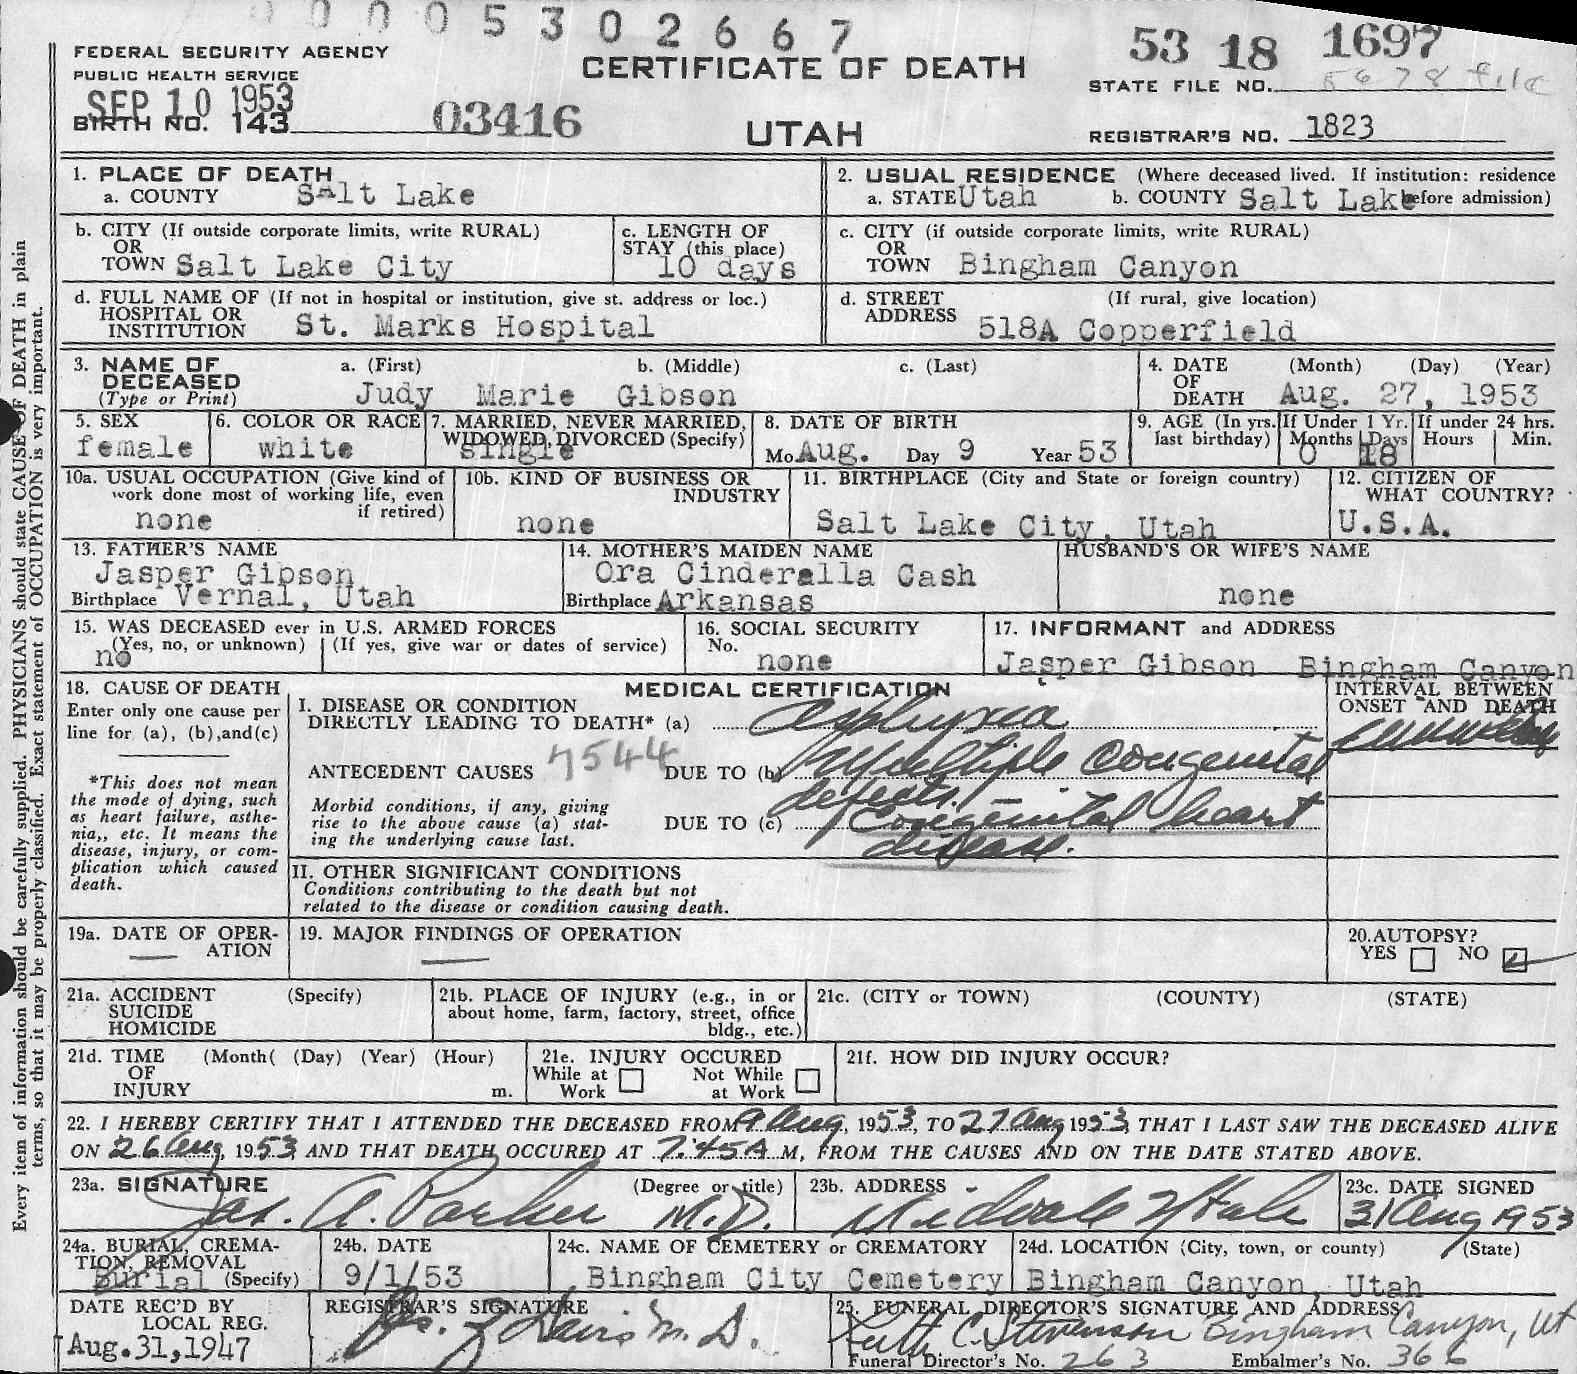 0005302667
53 18 1697
FEDERAL SECURITY AGENCY
PUBLIC HEALTH SERVICE
CERTIFICATE OF DEATH
STATE FILE NO. 5678 file
SEP 10 1953
BIRTH NO. 143
03416
UTAH
REGISTRAR'S NO. 1823
1. PLACE OF DEATH
a. COUNTY Salt Lake
2. USUAL RESIDENCE (Where deceased lived. If institution: residence before admission)
a. STATE Utah b. COUNTY Salt Lake
b. CITY (If outside corporate limits, write RURAL)
OR
TOWN Salt Lake City
c. LENGTH OF
STAY (this place)
10 days
c. CITY (if outside corporate limits, write RURAL)
OR
TOWN Bingham Canyon
d. FULL NAME OF (If not in hospital or institution, give st. address or loc.)
HOSPITAL OR
INSTITUTION St. Marks Hospital
d. STREET (If rural, give location)
ADDRESS
518A Copperfield
3. NAME OF
DECEASED
(Type or Print)
a. (First) b. (Middle) c. (Last)
Judy Marie Gibson
4. DATE (Month) (Day) (Year)
OF
DEATH Aug. 27, 1953
5. SEX
female
6. COLOR OR RACE
white
7. MARRIED, NEVER MARRIED,
WIDOWED, DIVORCED (Specify)
single
8. DATE OF BIRTH
Mo Aug. Day 9 Year 53
9. AGE (In yrs.
last birthday)
If Under 1 Yr.
Months Days
0 18
If under 24 hrs.
Hours Min.
10a. USUAL OCCUPATION (Give kind of
work done most of working life, even
if retired)
none
10b. KIND OF BUSINESS OR
INDUSTRY
none
11. BIRTHPLACE (City and State or foreign country)
Salt Lake City, Utah
12. CITIZEN OF
WHAT COUNTRY?
U.S.A.
13. FATHER'S NAME
Jasper Gibson
Birthplace Vernal, Utah
14. MOTHER'S MAIDEN NAME
Ora Cinderalla Cash
Birthplace Arkansas
HUSBAND'S OR WIFE'S NAME
none
15. WAS DECEASED ever in U.S. ARMED FORCES
(Yes, no, or unknown) (If yes, give war or dates of service)
no
16. SOCIAL SECURITY
No.
none
17. INFORMANT and ADDRESS
Jasper Gibson Bingham Canyon
18. CAUSE OF DEATH
Enter only one cause per
line for (a), (b),and(c)
*This does not mean
the mode of dying, such
as heart failure, asthe-
nia,, etc. It means the
disease, injury, or com-
plication which caused
death.
MEDICAL CERTIFICATION
I. DISEASE OR CONDITION
DIRECTLY LEADING TO DEATH* (a) Asphyxia
7544
ANTECEDENT CAUSES DUE TO (b) Multiple Congenital
defects. -
Morbid conditions, if any, giving
rise to the above cause (a) stat-
ing the underlying cause last.
DUE TO (c) Congenital heart
disease.
INTERVAL BETWEEN
ONSET AND DEATH
II. OTHER SIGNIFICANT CONDITIONS
Conditions contributing to the death but not
related to the disease or condition causing death.
19a. DATE OF OPER-
ATION
—
19. MAJOR FINDINGS OF OPERATION
—
20. AUTOPSY?
YES NO
21a. ACCIDENT (Specify)
SUICIDE
HOMICIDE
21b. PLACE OF INJURY (e.g., in or
about home, farm, factory, street, office
bldg., etc.)
21c. (CITY or TOWN) (COUNTY) (STATE)
21d. TIME (Month( (Day) (Year) (Hour)
OF
INJURY m.
21e. INJURY OCCURED
While at Not While
Work at Work
21f. HOW DID INJURY OCCUR?
22. I HEREBY CERTIFY THAT I ATTENDED THE DECEASED FROM 9 Aug, 1953, TO 27 Aug 1953, THAT I LAST SAW THE DECEASED ALIVE
ON 26 Aug, 1953 AND THAT DEATH OCCURED AT 7:45A M, FROM THE CAUSES AND ON THE DATE STATED ABOVE.
23a. SIGNATURE (Degree or title)
Jas. A. Parker M.D.
23b. ADDRESS
Midvale Utah
23c. DATE SIGNED
31 Aug 1953
24a. BURIAL, CREMA-
TION, REMOVAL
Burial (Specify)
24b. DATE
9/1/53
24c. NAME OF CEMETERY or CREMATORY
Bingham City Cemetery
24d. LOCATION (City, town, or county) (State)
Bingham Canyon, Utah
DATE REC'D BY
LOCAL REG.
Aug.31,1947
REGISTRAR'S SIGNATURE
Davis M.D.
25. FUNERAL DIRECTOR'S SIGNATURE AND ADDRESS
C. Stevenson Bingham Canyon, Ut
Funeral Director's No. 263 Embalmer's No. 366
Every item of information should be carefully supplied. PHYSICIANS should state CAUSE OF DEATH in plain
terms, so that it may be properly classified. Exact statement of OCCUPATION is very important.